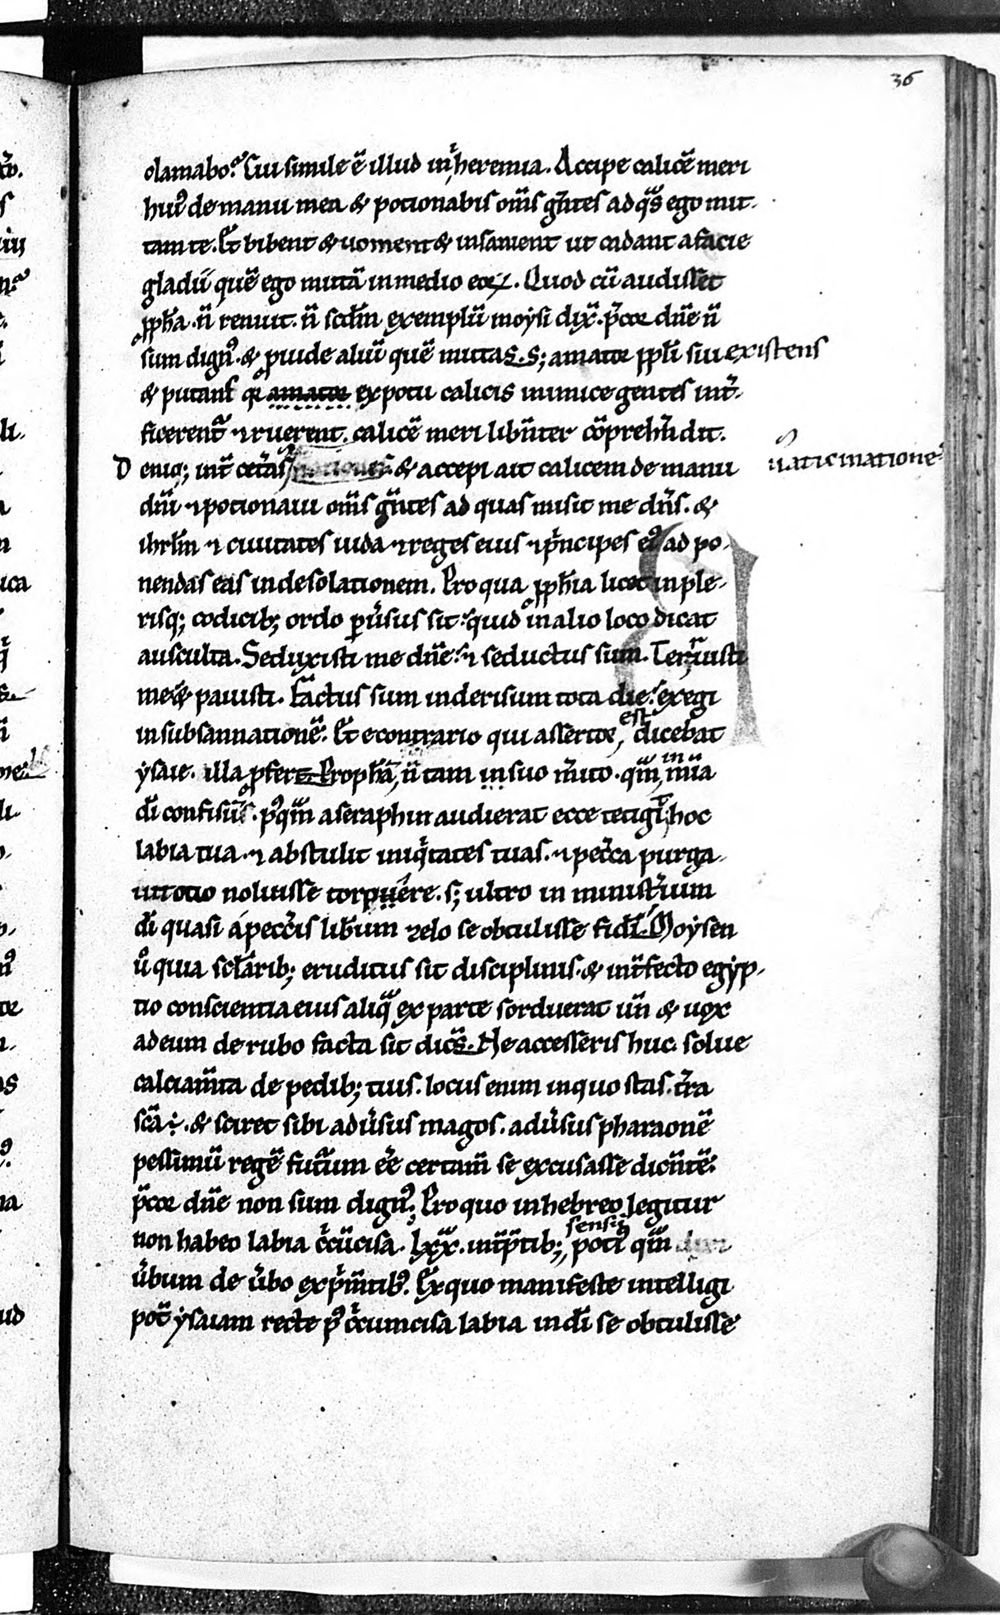 36
olamabo. Cui simile ē illud in heremia. Accipe calicē meri
huiꝰ de manu mea & potionabis om̄s gn̄tes ad q̄s ego mit
tam te. Et bibent & uoment & insanient ut cadant a facie
gladii quē ego mittā in medio eoꝝ. Quod cū audisset
ꝓph̄a. n̄ renuit. n̄ scd̄m exemplū moysi dix̄. p̄cor dn̄e n̄
sum dignꝰ. & ꝓuide aliū quē mittas. S; amator ppl̄i sui existens
& putans q amator ex potu calicis inimice gentes int̄
ficerent᷑ ⁊ ruerent. calicē meri libn̄ter cōprehn̄dit.
Deniq; int̄ cet̄as & accepi ait calicem de manu uaticinatione
dn̄i ⁊ potionaui om̄s gn̄tes ad quas misit me dn̄s. &
ihrl̄m ⁊ ciuitates iuda ⁊ reges eius ⁊ p̄ncipes eiꝰ ad po
nendas eas in desolationem. Pro qua ꝓph̄ia licet in ple
risq; codicib; ordo ꝑūsus sit. quid in alio loco dicat
ausculta. Seduxisti me dn̄e. ⁊ seductus sum. Tenuisti
me & pauisti. factus sum in derisum tota die. exegi
in subsannationē. Et econtrario qui assertor, est dicebat
ysaie. illa ꝓfert Proph̄ā n̄ tam in suo m̄ito. qm̄ in m̄ia
dī confisū. pꝰqm̄ a seraphin audierat ecce tetigi hoc
labia tua. ⁊ abstulit iniq̄tates tuas. ⁊ pecc̄a purga
uit otio noluisse torpuere. s; ultro in minist̄ium
dī quasi a pecc̄is lib̄um zelo se obtulisse fidī. Moysen
u̅ quia sc̄larib; eruditus sit disciplinis. & int̄fecto egyp
tio conscientia eius aliq̄ ex parte sorduerat un̄ & uox
ad eum de rubo facta sit dic̄s. Ne accesseris huc. solue
calciam̄ta de pedib; tuis. locus enim in quo stas. t̄ra
sc̄a ÷. & sciret sibi adu̅sus magos. adu̅sus pharaonē
pessimū regē futurum ee̅ certam̄ se excusasse dicn̄tē.
p̄cor dn̄e non sum dignꝰ. Pro quo in hebreo legitur
non habeo labia c̄cūcisa. lxx. int̄p̄tib; sensū potiꝰ qm̄
u̅bum de u̅bo exp̄m̄tibꝰ. Ex quo manifeste intelligi
pot̄ ysaiam recte pꝰ c̄cumcisa labia in dī se obtulisse